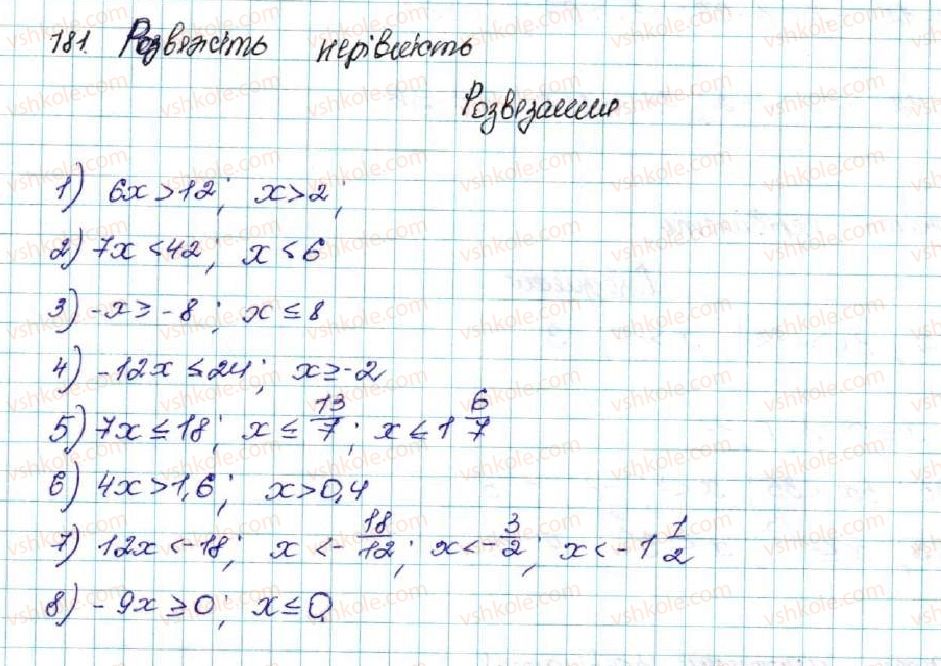 181. Розвяжіть нерівність
Розвезання
1) 6x > 12; x > 2;
2) 7x < 42; x < 6
3) -x ≥ -8; x ≤ 8
4) -12x ≤ 24; x ≥ -2
5) 7x ≤ 18; x ≤ 13/7; x ≤ 1 6/7
6) 4x > 1,6; x > 0,4
7) 12x < -18; x < -18/12; x < -3/2; x < -1 1/2
8) -9x ≥ 0; x ≤ 0